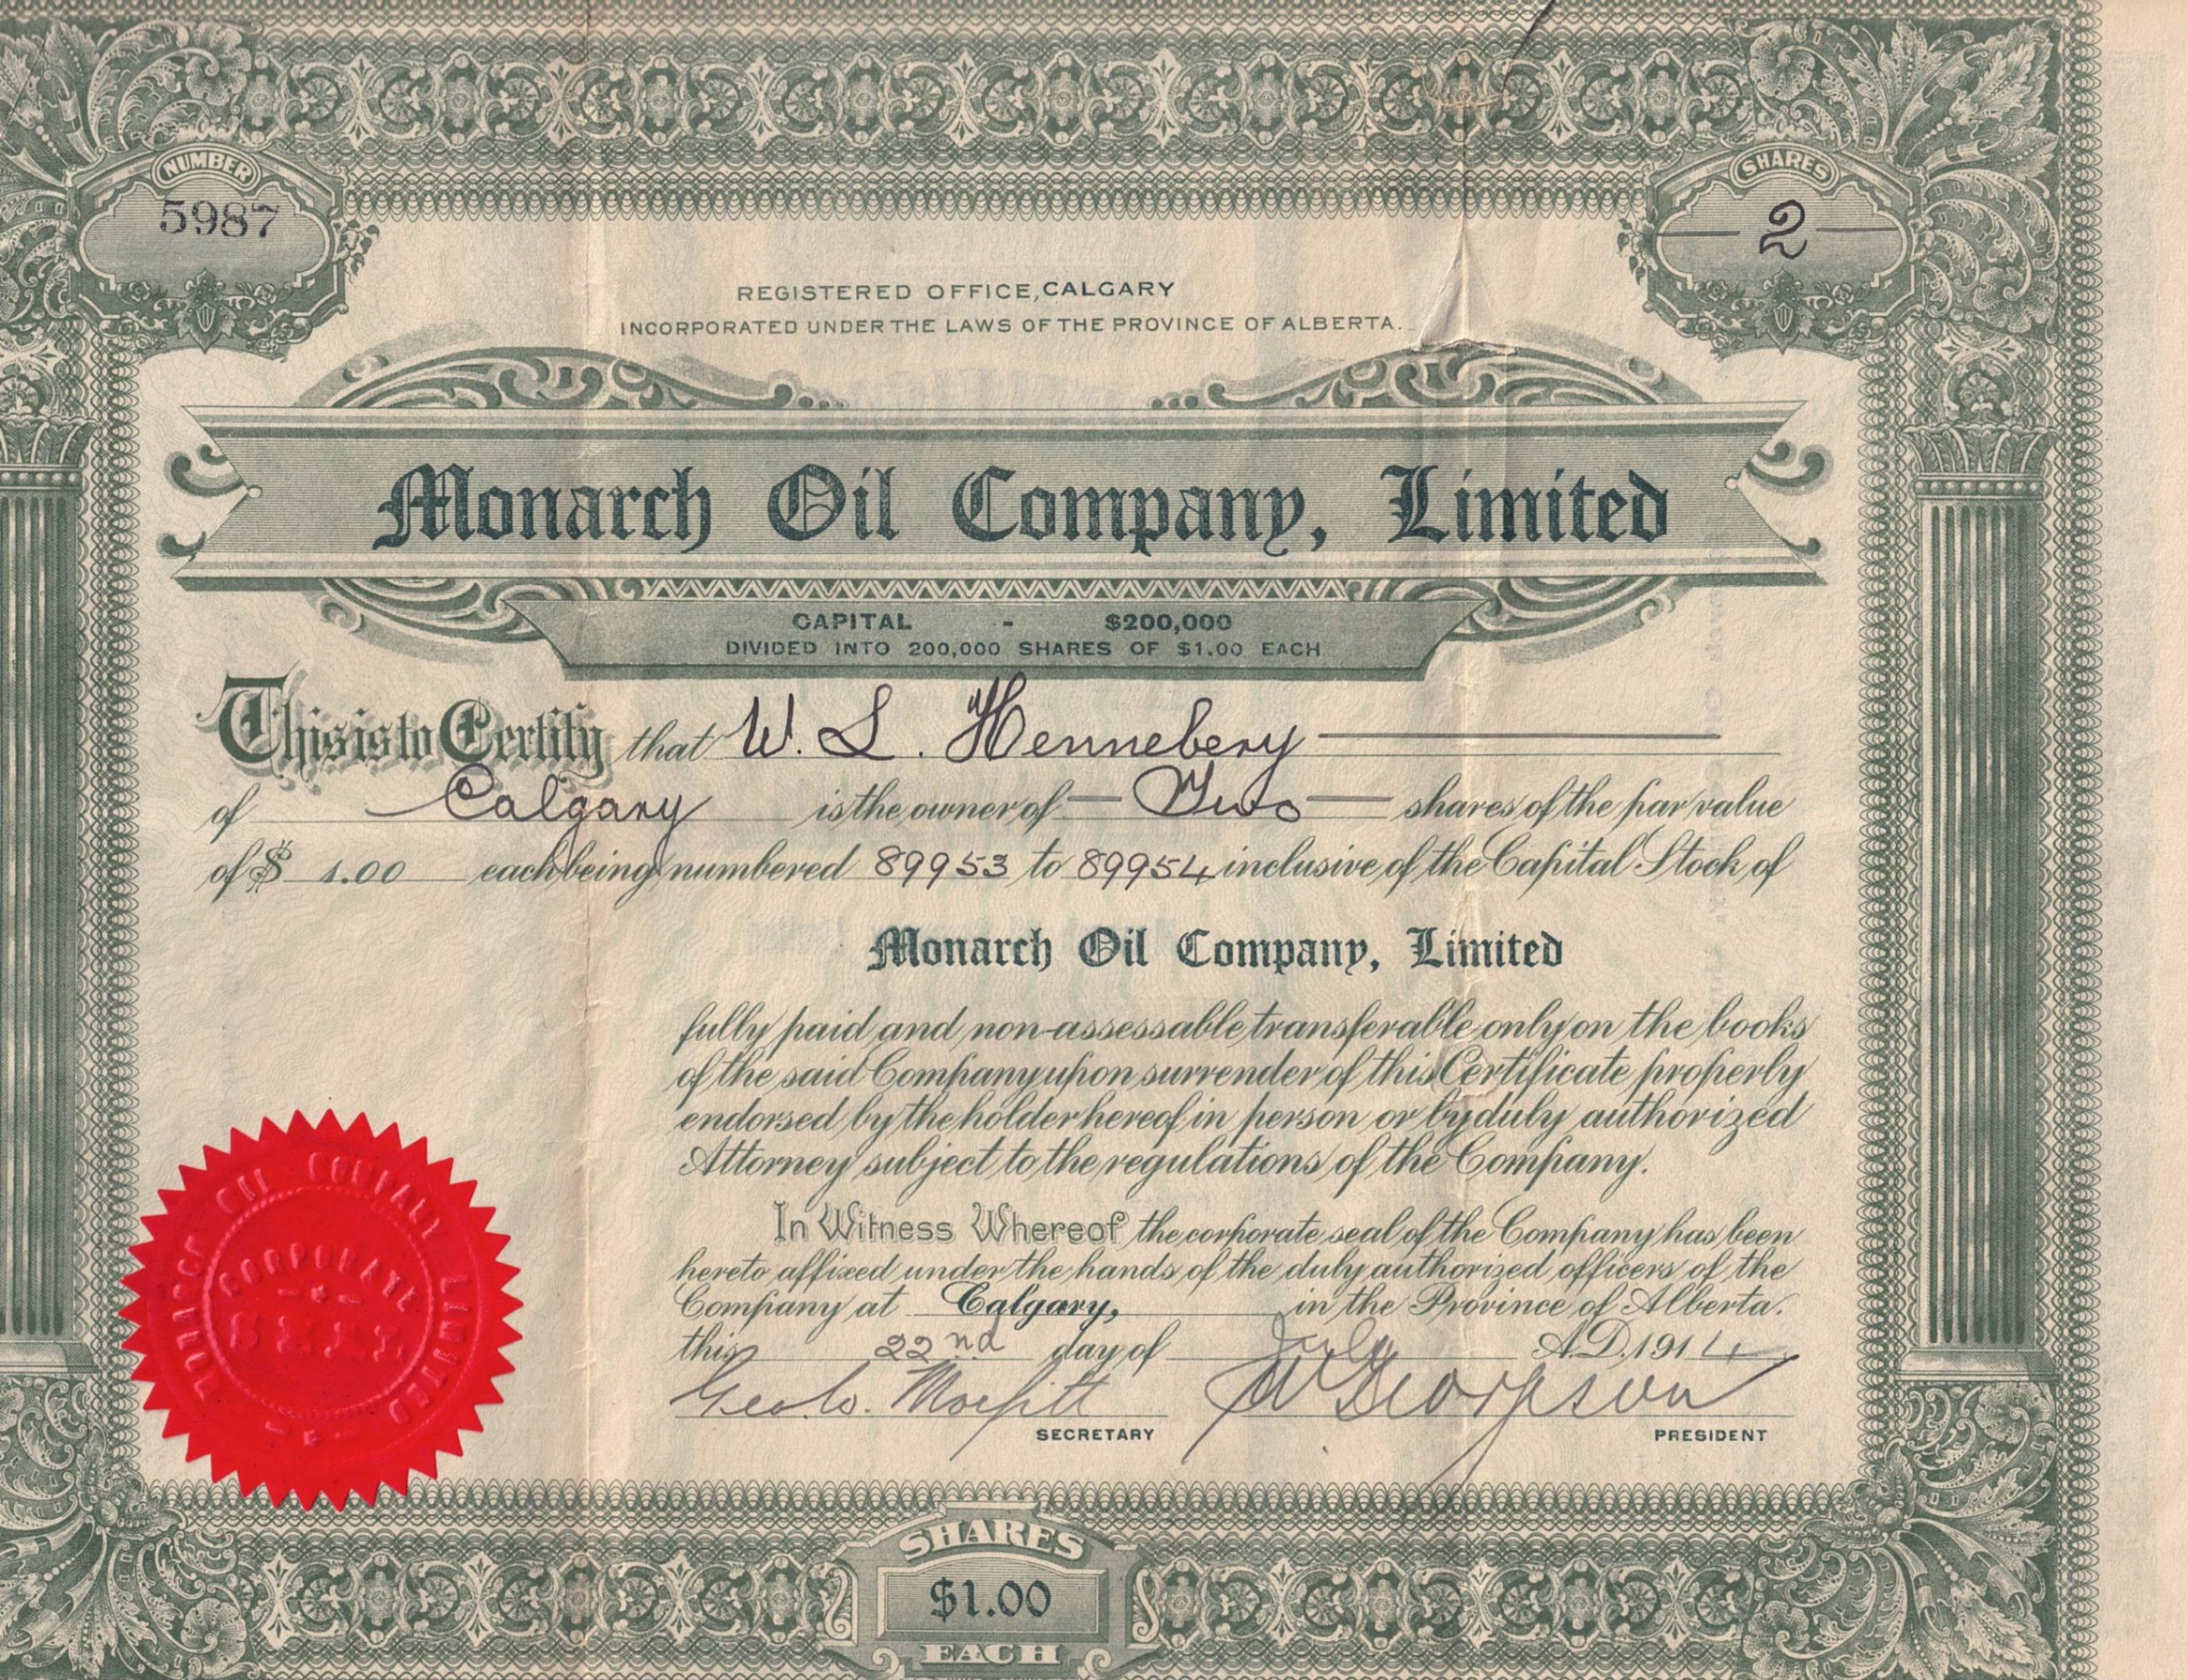 NUMBER
5987
SHARES
2
REGISTERED OFFICE, CALGARY
INCORPORATED UNDER THE LAWS OF THE PROVINCE OF ALBERTA.
Monarch Oil Company, Limited
CAPITAL - $200,000
DIVIDED INTO 200,000 SHARES OF $1.00 EACH
This is to Certify that W. L. Hennebery
of Calgary is the owner of — Two — shares of the par value
of $ 1.00 each being numbered 89953 to 89954 inclusive of the Capital Stock of
Monarch Oil Company, Limited
fully paid and non-assessable transferable only on the books
of the said Company upon surrender of this Certificate properly
endorsed by the holder hereof in person or by duly authorized
Attorney subject to the regulations of the Company.
In Witness Whereof the corporate seal of the Company has been
hereto affixed under the hands of the duly authorized officers of the
Company at Calgary, in the Province of Alberta.
this 22nd day of July A.D. 1914
SECRETARY
PRESIDENT
MONARCH OIL COMPANY LIMITED
CORPORATE
SEAL
SHARES
$1.00
EACH